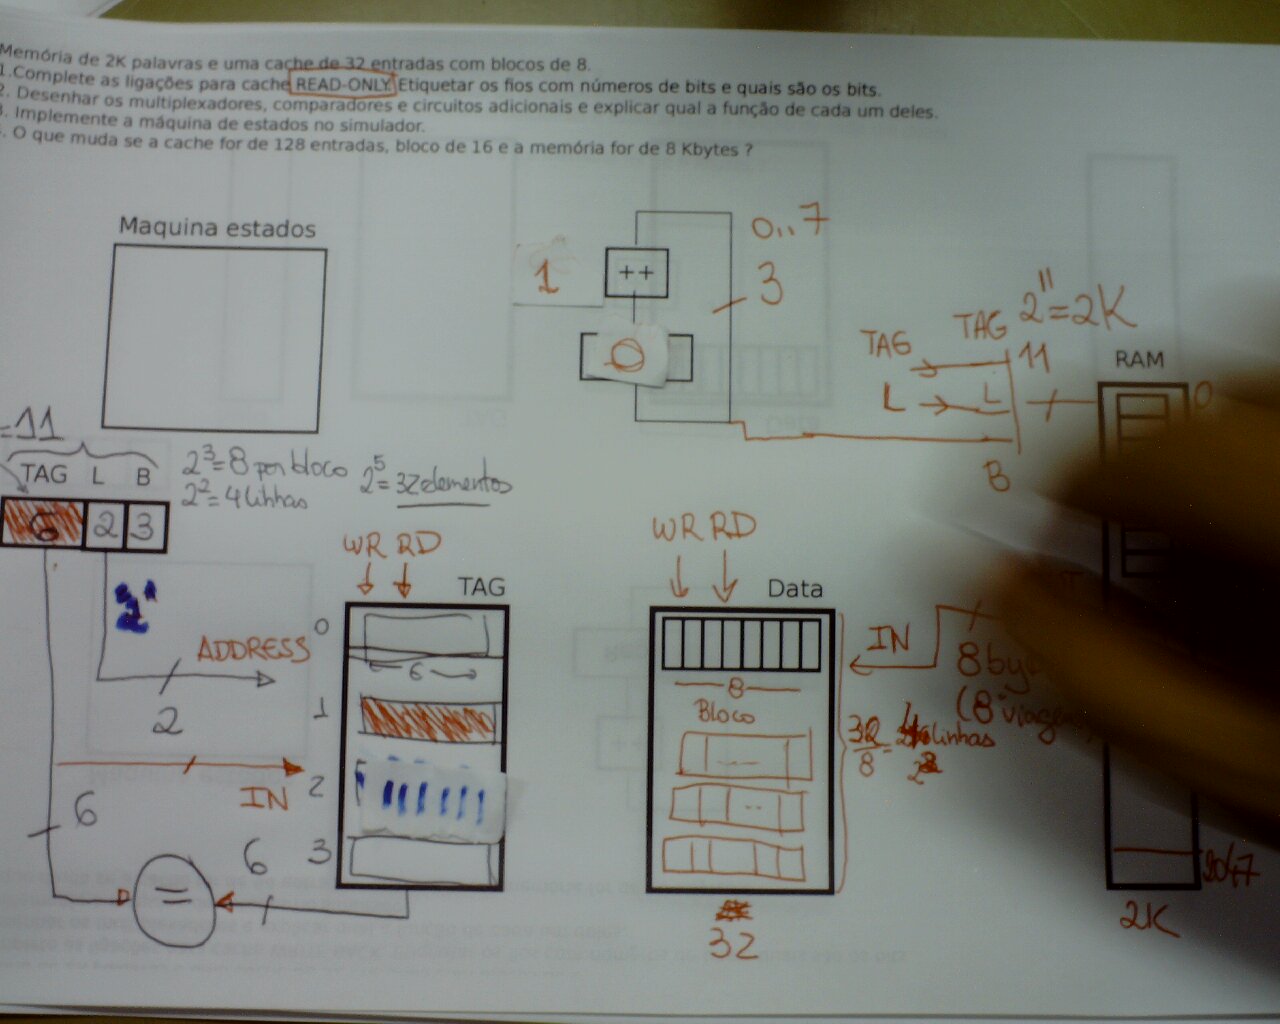 Memória de 2K palavras e uma cache de 32 entradas com blocos de 8.
1.Complete as ligações para cache READ-ONLY. Etiquetar os fios com números de bits e quais são os bits.
2. Desenhar os multiplexadores, comparadores e circuitos adicionais e explicar qual a função de cada um deles.
3. Implemente a máquina de estados no simulador.
. O que muda se a cache for de 128 entradas, bloco de 16 e a memória for de 8 Kbytes ?
Maquina estados
0..7
1
++
3
0
TAG TAG 2¹¹=2K
11
L L
B
RAM
0
=11
TAG L B
6 2 3
2³=8 por bloco
2²=4 linhas
2⁵=32 elementos
WR RD
TAG
0
6
1
2
3
ADDRESS
2
IN
6
=
6
WR RD
Data
8
Bloco
IN
32/8=
linhas
32
8 by
(8 viagen
2047
2K